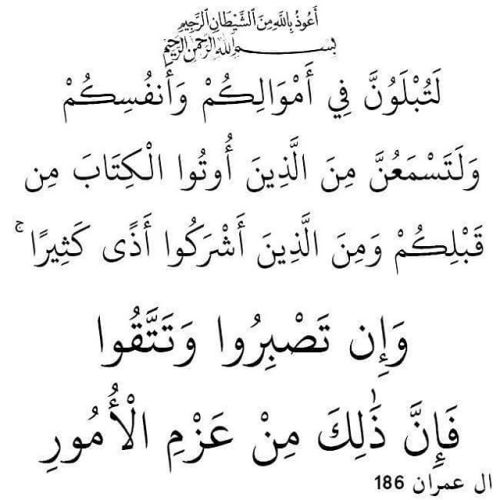 أعوذ بالله من الشيطان الرجيم
بسم الله الرحمن الرحيم
لَتُبْلَوُنَّ فِي أَمْوَالِكُمْ وَأَنفُسِكُمْ
وَلَتَسْمَعُنَّ مِنَ الَّذِينَ أُوتُوا الْكِتَابَ مِن
قَبْلِكُمْ وَمِنَ الَّذِينَ أَشْرَكُوا أَذًى كَثِيرًا ۚ
وَإِن تَصْبِرُوا وَتَتَّقُوا
فَإِنَّ ذَٰلِكَ مِنْ عَزْمِ الْأُمُورِ
ال عمران 186